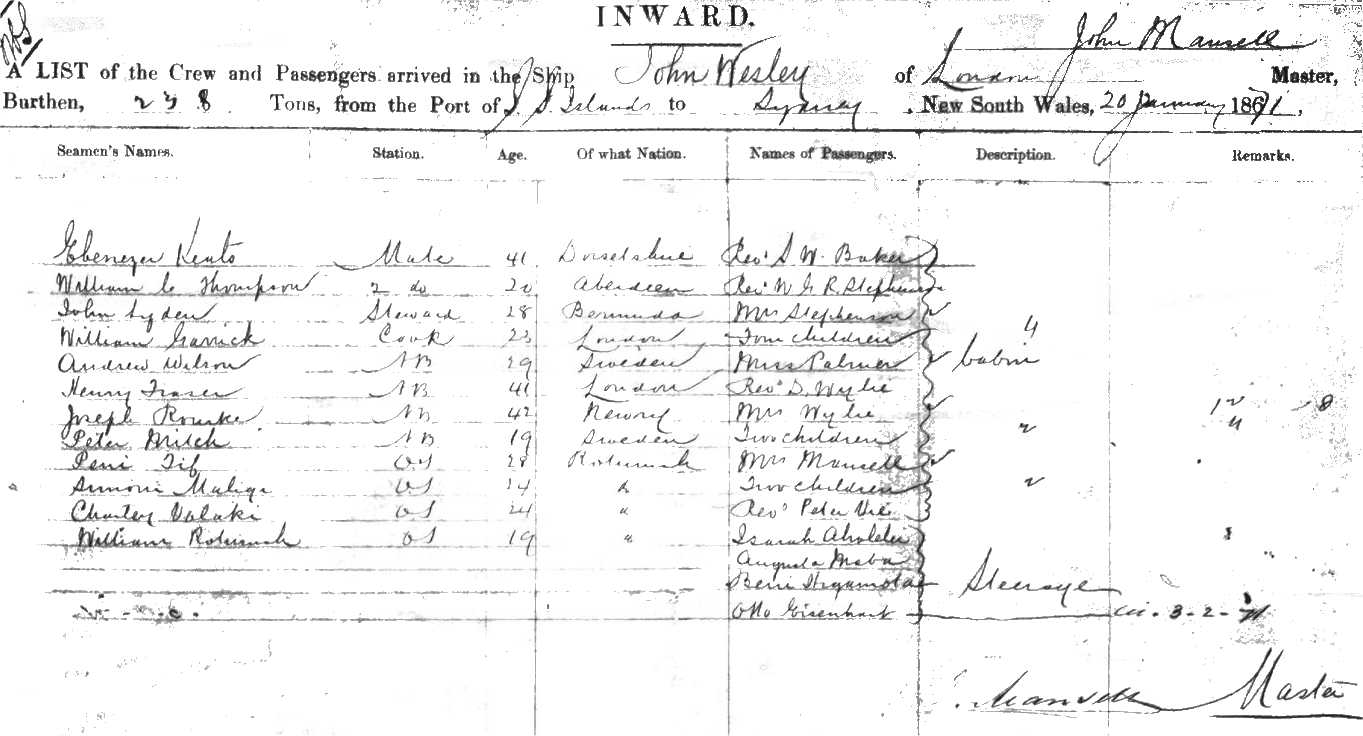 INWARD.
John Mansell
A LIST of the Crew and Passengers arrived in the Ship John Wesley of London Master,
Burthen, 238 Tons, from the Port of S. S. Islands to Sydney, New South Wales, 20 January 1871.
Seamen's Names. Station. Age. Of what Nation. Names of Passengers. Description. Remarks.
Ebenezer Kents Mate 41 Dorsetshire Revd S W. Baker
William C Thompson 2 do 20 Aberdeen Revd W G R. Stephenson
John Lyden Steward 28 Bermuda Mrs Stephenson
William Garrick Cook 23 London Four children 4
Andrew Wilson AB 29 Sweden Miss Palmer Cabin
Henry Fraser AB 41 London Revd D. Wylie
Joseph Rourke AB 42 Newry Mrs Wylie 12 8
Peter Mitch AB 19 Sweden Two children 2 4
Peni OS 28 Rotumah Mrs Mansell
OS 24 " Two children 2
Charley Valaki OS 24 " Revd Peter
William Rotumah OS 19 " Isarah
Augusta Maba
Beni Steerage
Otto Eisenhart 3-2-71
Mansell Master